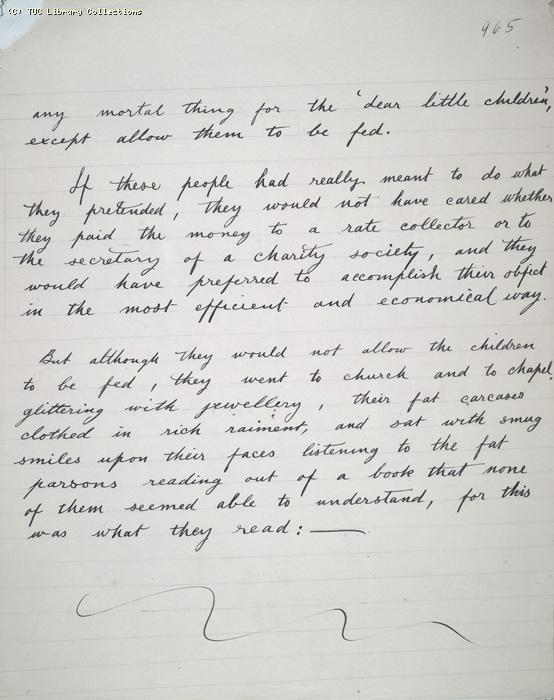 (C) TUC Library Collections
965
any mortal thing for the 'dear little children',
except allow them to be fed.
If these people had really meant to do what
they pretended, they would not have cared whether
they paid the money to a rate collector or to
the secretary of a charity society, and they
would have preferred to accomplish their object
in the most efficient and economical way.
But although they would not allow the children
to be fed, they went to church and to chapel
glittering with jewellery, their fat carcases
clothed in rich raiment, and sat with smug
smiles upon their faces listening to the fat
parsons reading out of a book that none
of them seemed able to understand, for this
was what they read:—